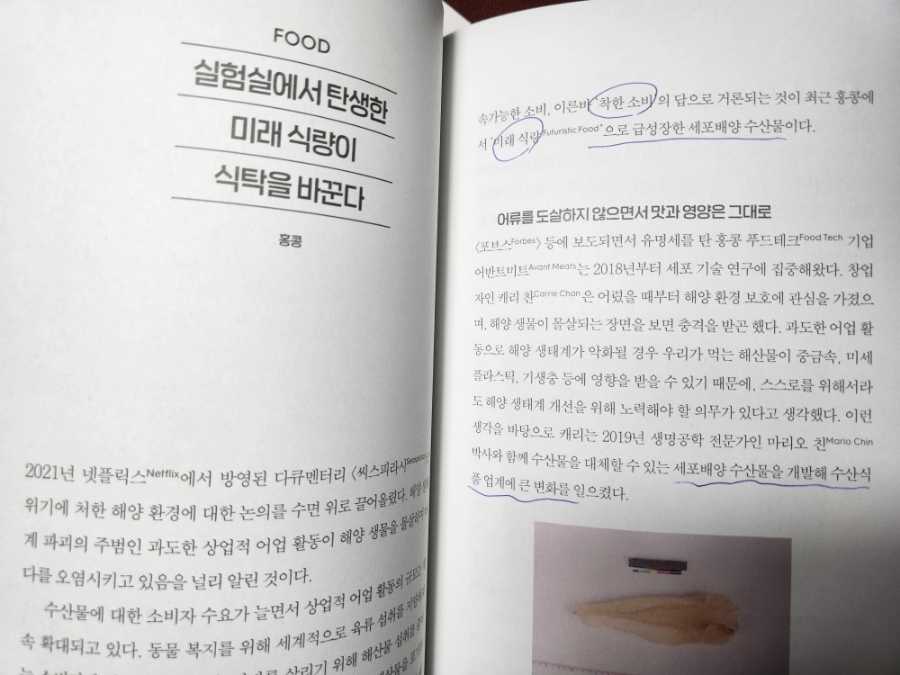 FOOD
실험실에서 탄생한
미래 식량이
식탁을 바꾼다
홍콩
2021년 넷플릭스Netflix에서 방영된 다큐멘터리 〈씨스피라시
위기에 처한 해양 환경에 대한 논의를 수면 위로 끌어올렸다. 해양
계 파괴의 주범인 과도한 상업적 어업 활동이 해양 생물을 몰살하며
다를 오염시키고 있음을 널리 알린 것이다.
수산물에 대한 소비자 수요가 늘면서 상업적 어업 활동의 규모는
속 확대되고 있다. 동물 복지를 위해 세계적으로 육류 섭취를 지양하
살리기 위해 해산물 섭취를
속가능한 소비, 이른바 '착한 소비'의 답으로 거론되는 것이 최근 홍콩에
서 '미래 식량Futuristic Food'으로 급성장한 세포배양 수산물이다.
어류를 도살하지 않으면서 맛과 영양은 그대로
〈포브스Forbes〉 등에 보도되면서 유명세를 탄 홍콩 푸드테크Food Tech 기업
어반트미트Avant Meats는 2018년부터 세포 기술 연구에 집중해왔다. 창업
자인 캐리 찬Carrie Chan은 어렸을 때부터 해양 환경 보호에 관심을 가졌으
며, 해양 생물이 몰살되는 장면을 보면 충격을 받곤 했다. 과도한 어업 활
동으로 해양 생태계가 악화될 경우 우리가 먹는 해산물이 중금속, 미세
플라스틱, 기생충 등에 영향을 받을 수 있기 때문에, 스스로를 위해서라
도 해양 생태계 개선을 위해 노력해야 할 의무가 있다고 생각했다. 이런
생각을 바탕으로 캐리는 2019년 생명공학 전문가인 마리오 친Mario Chin
박사와 함께 수산물을 대체할 수 있는 세포배양 수산물을 개발해 수산식
품 업계에 큰 변화를 일으켰다.